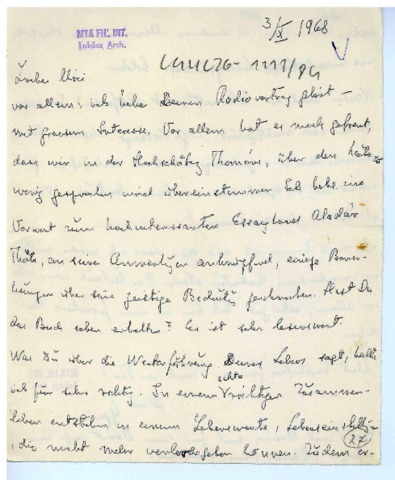 3/X 1968
MTA FIL. INT.
Lukács Arch.
Liebe
vor allem: ich habe Deinen Radiovortrag gelesen –
mit grossem Interesse. Vor allem hat es mich gefreut,
dass wir in der Hochschätzung Thomas, über den heute so
wenig gesprochen wird übereinstimmen. Ich habe im
Vorwort zum hochinteressanten Essayband Aladár
an seine anknüpfend, einige Bemer-
kungen über seine geistige geschrieben. Hast Du
das Buch schon erhalten? Es ist sehr lesenswert.
Was Du über die Weiterführung Deines Lebens sagst, halte
ich für sehr richtig. In einem echten Zusammen-
leben entstehen in einem Lebenswerte,
, die nicht mehr können. Zudem er-
27